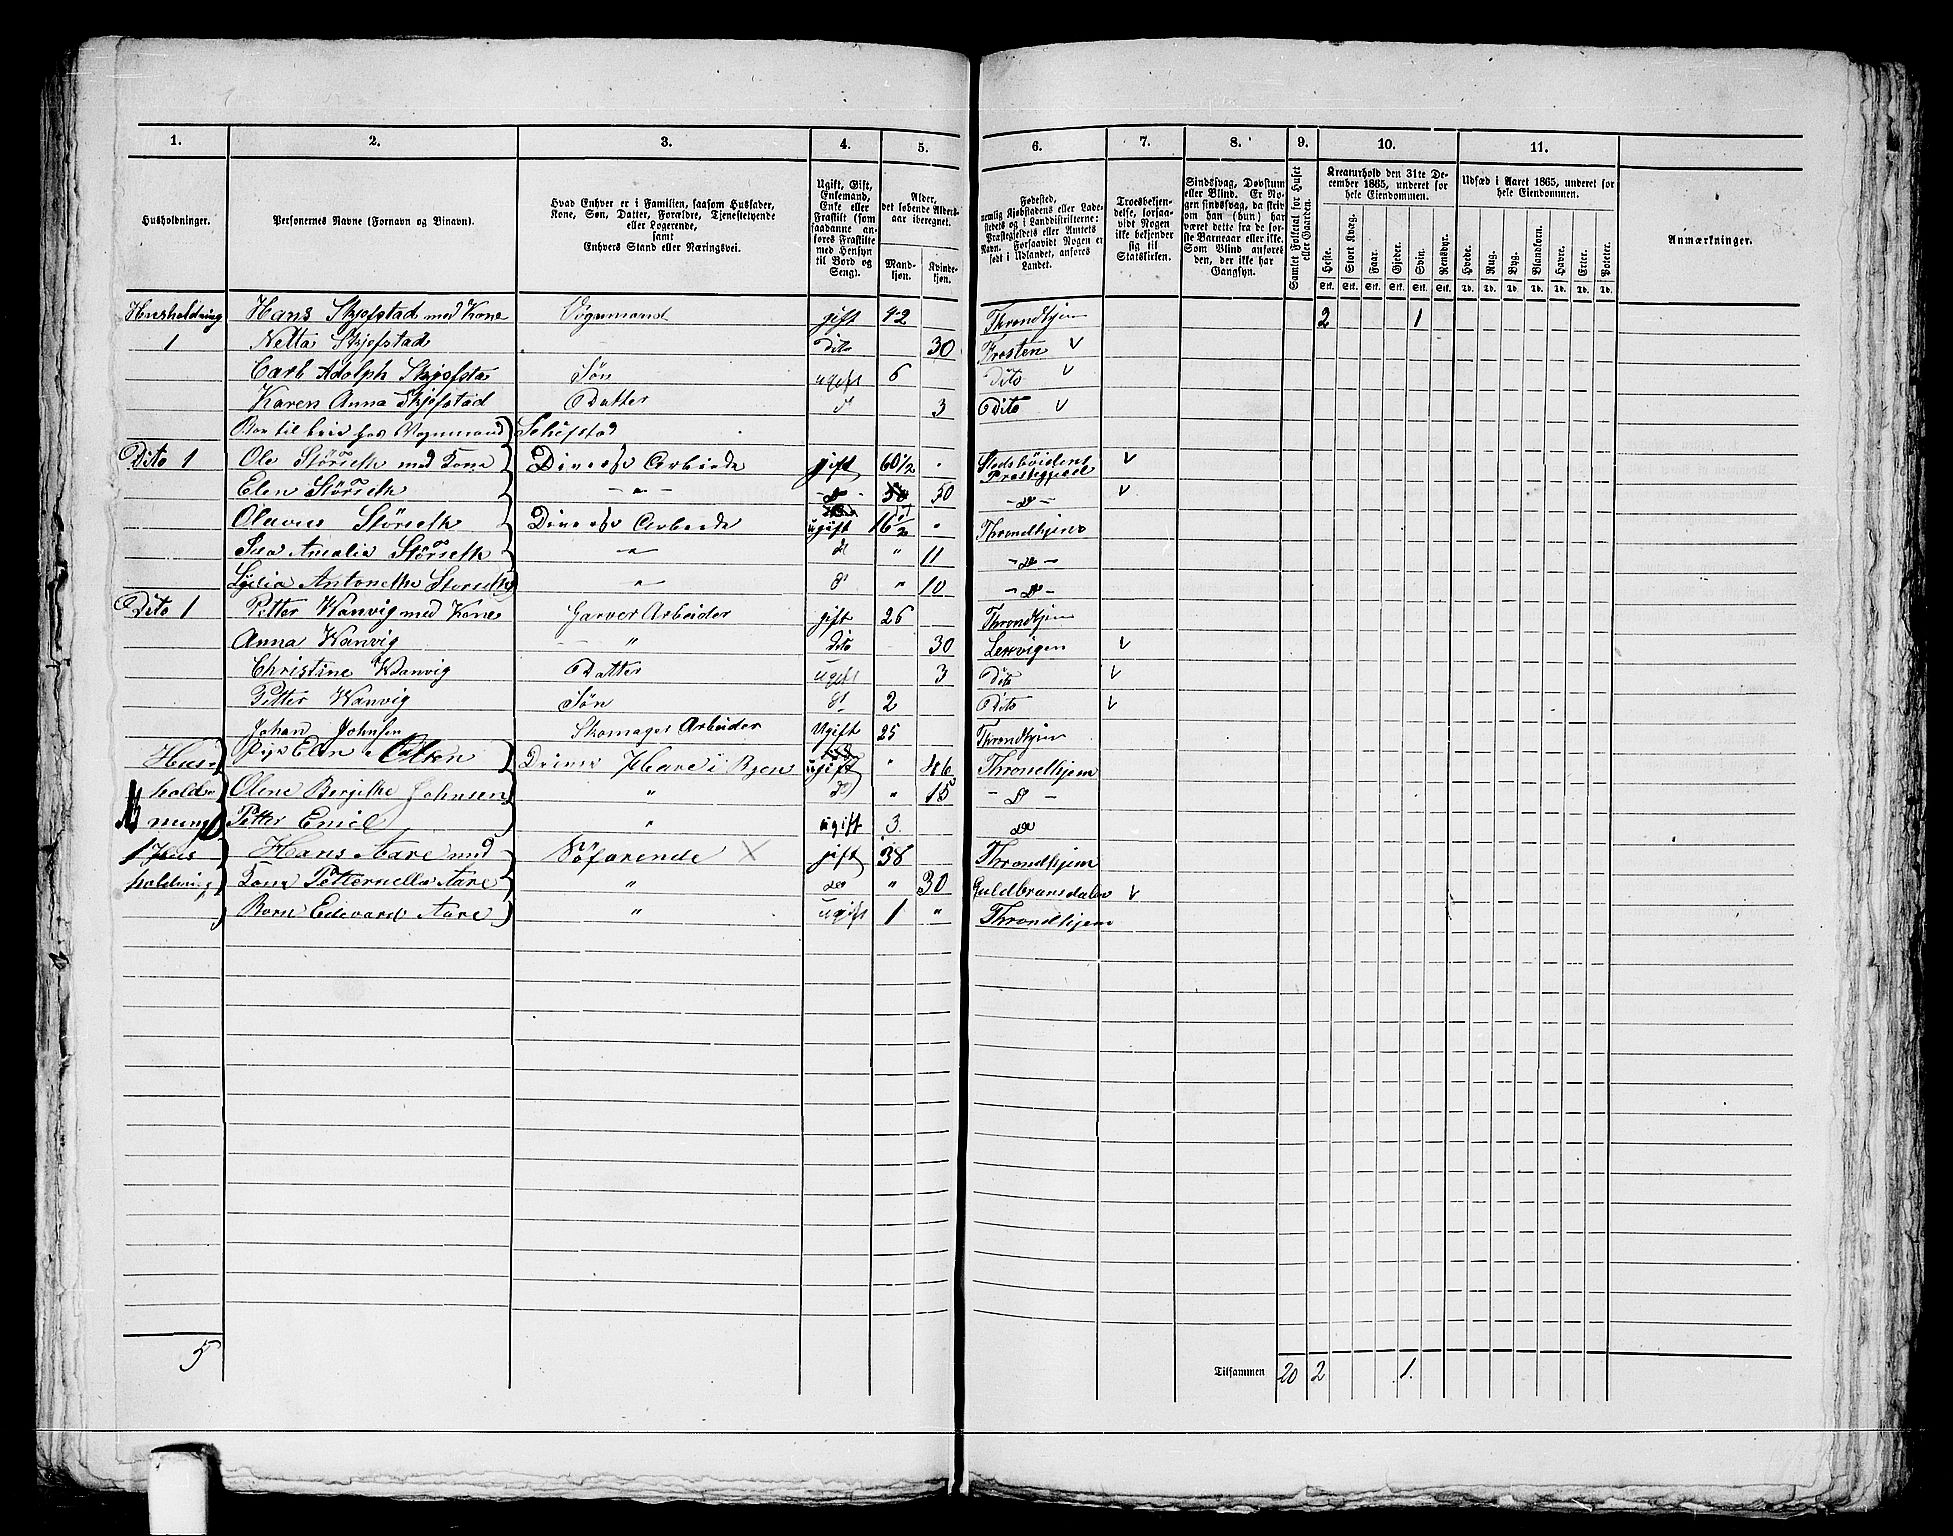 1. 2. 3. 4. 5. 6. 7. 8. 9. 10. 11.
Husholdninger.
Personernes Navne (Fornavn og Tilnavn).
Hvad Enhver er i Familien, saasom Husfader, Kone, Søn, Datter, Forældre, Tjenestetyende eller Logerende, samt Enhvers Stand eller Næringsvei.
Ugift, Gift, Enkemand, Enke eller Fraskilt (som saadanne anføres Fraskilte med Hensyn til Bord og Seng).
Alder, det løbende Alders-aar iberegnet.
Mandkjøn. Kvindekjøn.
Fødested, nemlig Kjøbstadens eller Ladestedets og i Landdistrikterne: Præstegjeldets eller Amtets Navn. Forsaavidt Nogen er født i Udlandet, anføres Landet.
Troesbekjendelse, forsaavidt Nogen ikke bekjender sig til Statskirken.
Sindssvag, Døvstum eller Blind. Er Nogen sindssvag, da skrives om han (hun) har været dette fra de første Barneaar eller ikke. Som Blind anføres den, der ikke har Gangsyn.
Samlet Folketal for Huset eller Gaarden.
Kreaturhold den 31te December 1865, underet for hele Eiendommen.
Heste. Stort Kvæg. Faar. Gjeder. Svin. Rensdyr.
Stk. Stk. Stk. Stk. Stk. Stk.
Udsæd i Aaret 1865, underet for hele Eiendommen.
Hvede. Rug. Byg. Blandkorn. Havre. Erter. Poteter.
Td. Td. Td. Td. Td. Td. Td.
Anmærkninger.
Husholdning Hans Skjefstad med Kone Vognmand gift 42 Throndhjem 2 1
1 Netta Skjefstad dito 30 Frosten v
Carl Adolph Skjefsta Søn ugift 6 dito v
Karen Anna Skjefstad Datter d 3 Dito v
Bor til hos Vognmand Schifstad
Dito 1 Ole Störseth med Kone Diverse Arbeide gift 60½ Stadsböidens Prestegjeld v
Elen Störseth – " – d 50 – do – v
Olavus Störseth Diverse Arbeide ugift 16½ Throndhjems
Amalia Störseth – " – do " 11 – do –
Lydia Antoneth Storseth – " – d " 10 – do –
Dito 1 Petter Wanvig med Kone Garver Arbeider gift 26 Throndhjem
Anna Wanvig " dito 30 Lexvigen v
Christine Wanvig Datter ugift 3 Dito v
Petter Wanvig Søn d 2 Dito v
Johan Johnsen Skomager Arbeider Ugift 25 Throndhjem
Hus Olsen i Byen ugift " 46 Throndhjem
holde Oline Bergithe Johnsen " do " 15 – d –
ning Petter Emiel " ugift 3 do
1 Hus Hans Aare med Söfarende X gift 38 Throndhjem
holdning Kona Petternella Aare " do " 30 Guldbransdalen v
Born Edevard Aare " ugift 1 " Throndhjem
5 Tilsammen 20 2 1.